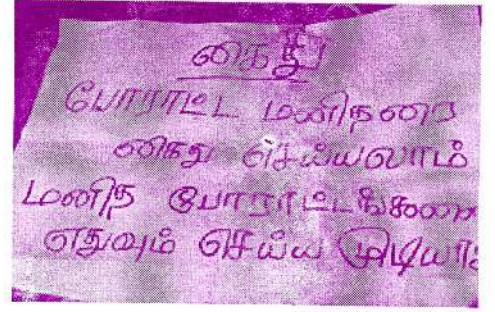 கைது
போராட்ட மனிதரை
கைது செய்யலாம்
மனித போராட்டங்களை
எதுவும் செய்ய முடியா